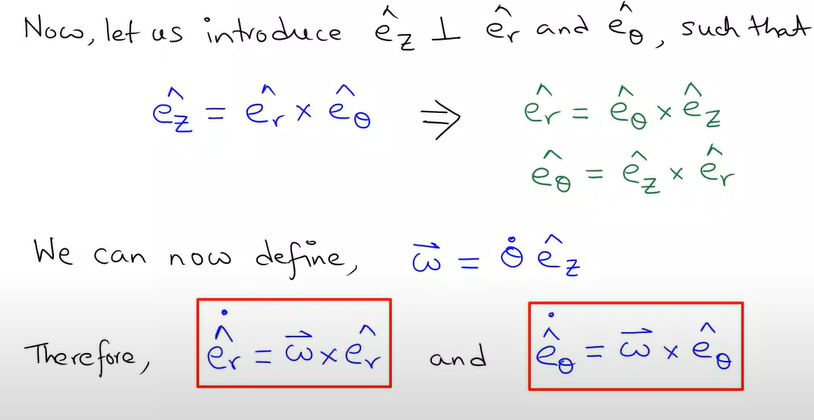 Now, let us introduce ê_z ⊥ ê_r and ê_θ, such that
ê_z = ê_r × ê_θ ⇒ ê_r = ê_θ × ê_z
ê_θ = ê_z × ê_r
We can now define, ω⃗ = θ̇ ê_z
Therefore, ê̇_r = ω⃗ × ê_r and ê̇_θ = ω⃗ × ê_θ